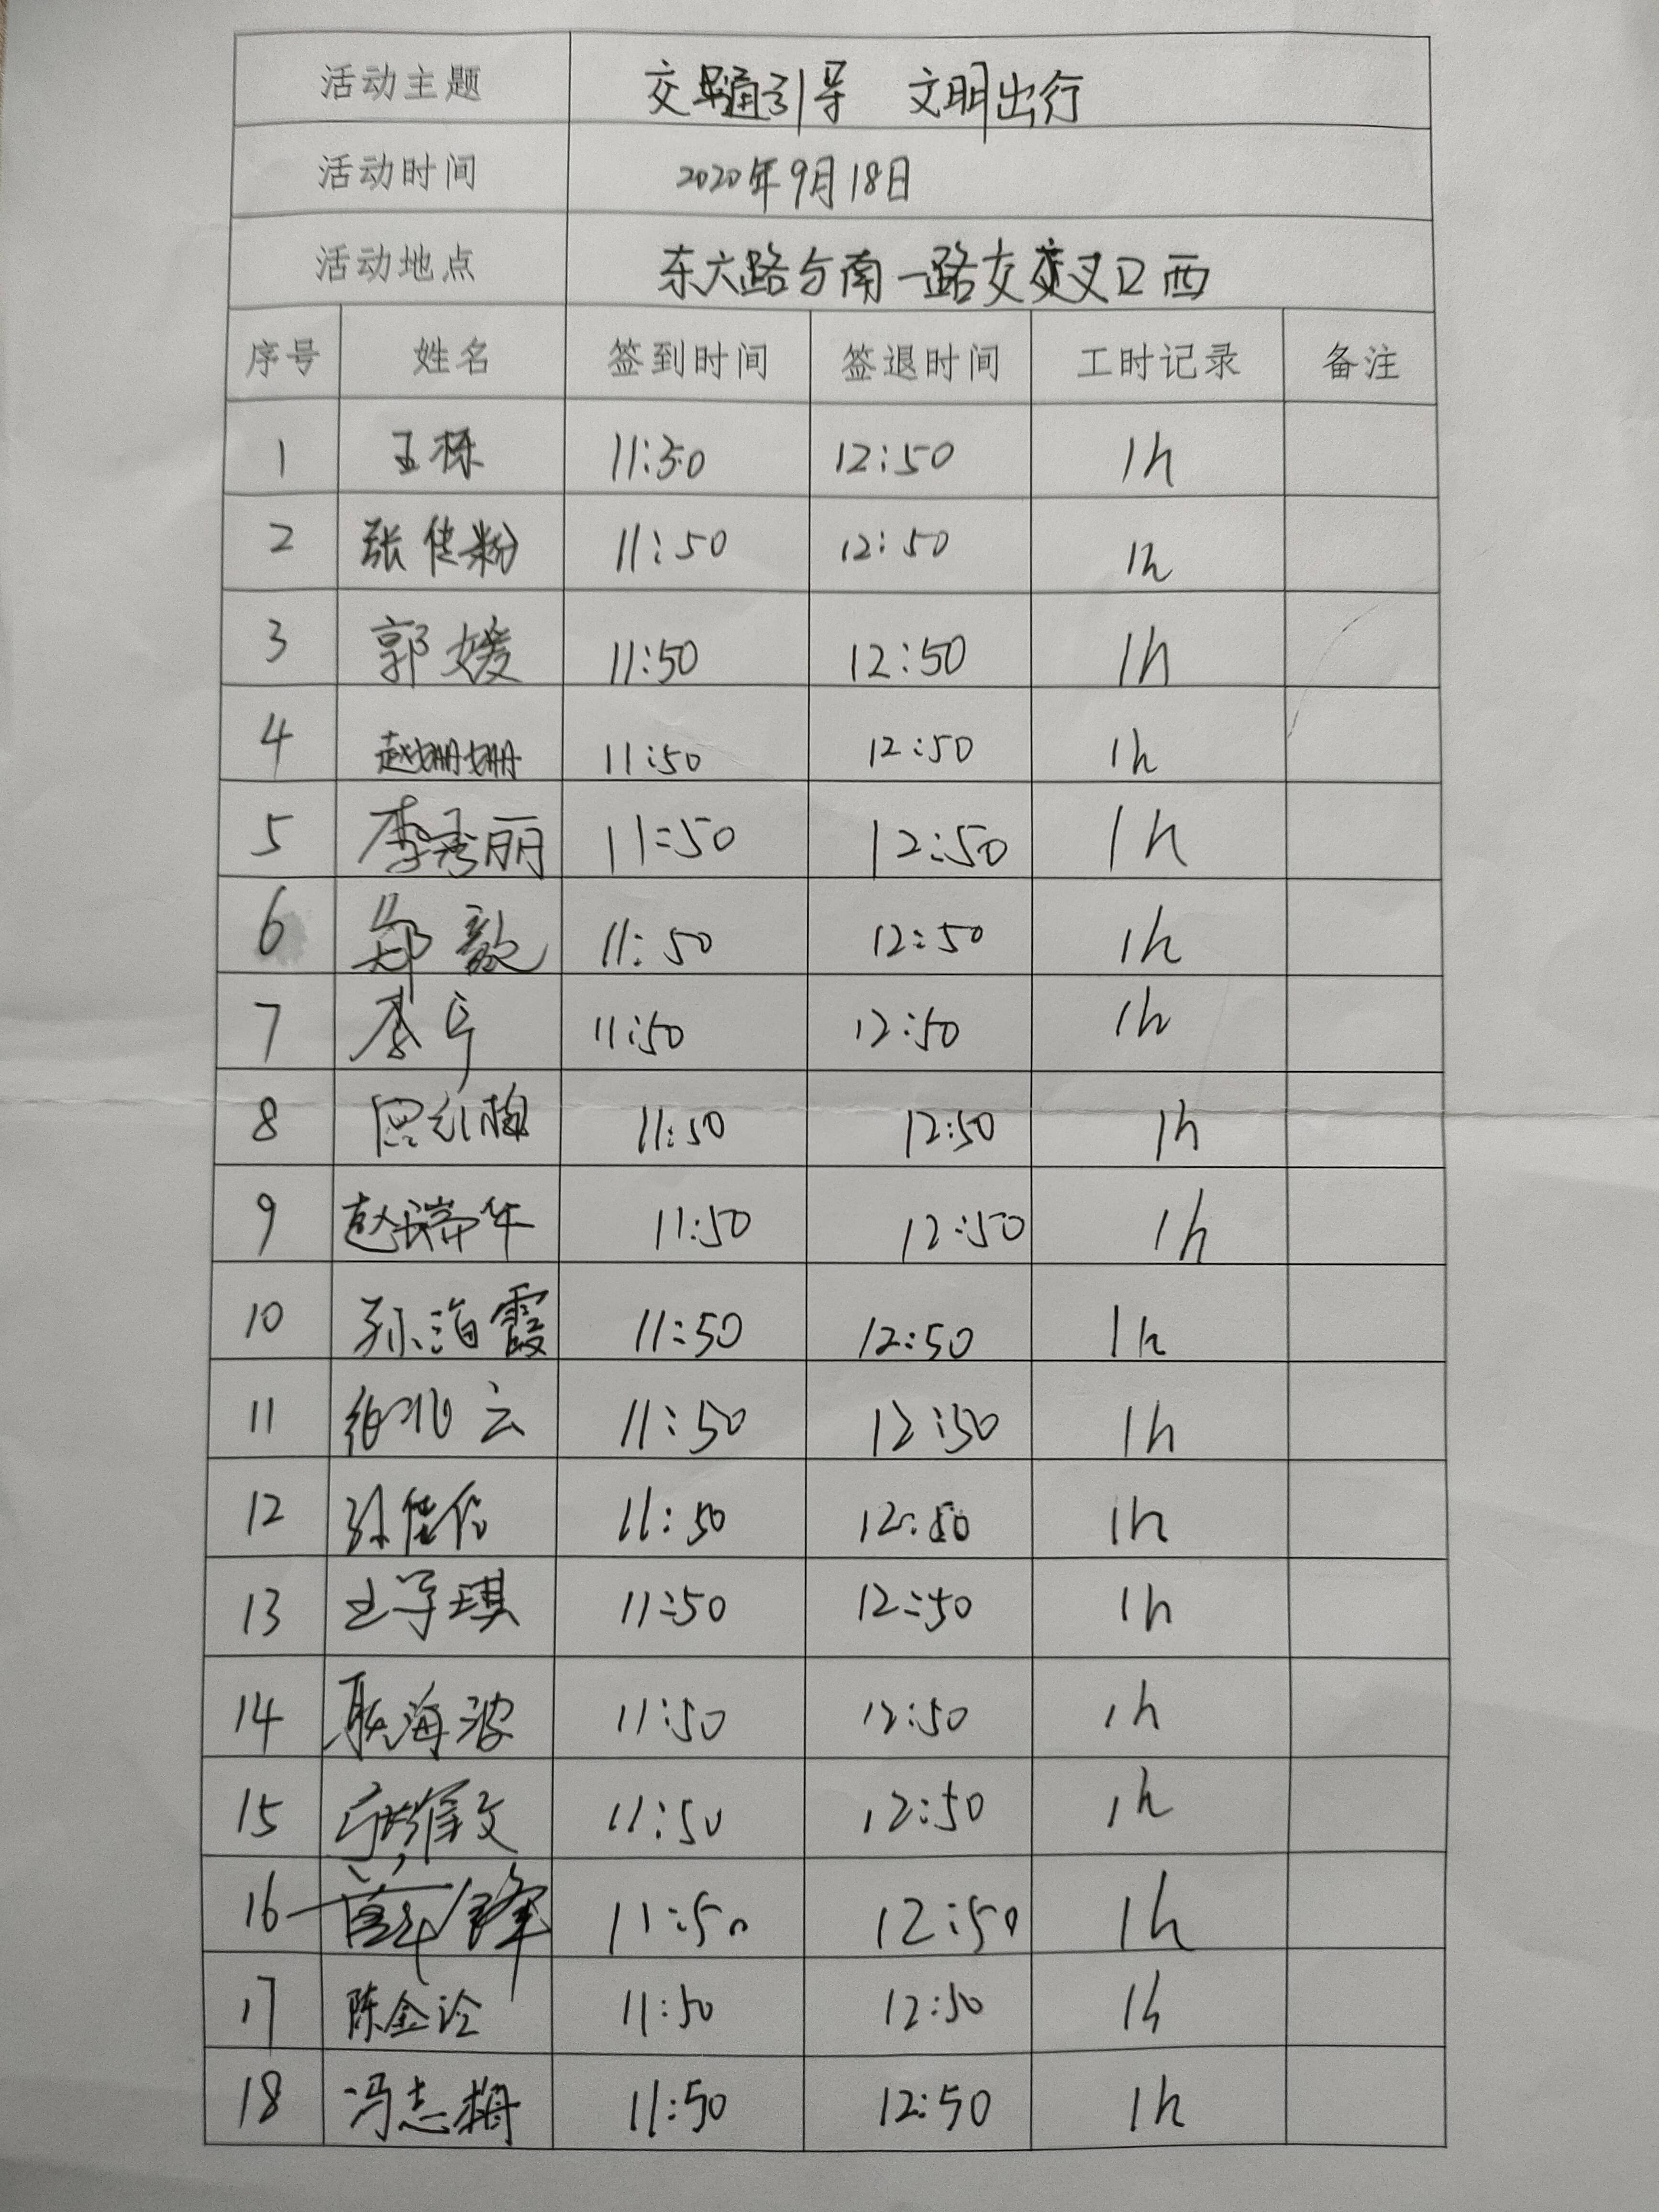 活动主题 交通引导 文明出行
活动时间 2020年9月18日
活动地点 东六路与南一路交叉口西
序号 姓名 签到时间 签退时间 工时记录 备注
1 王栋 11:50 12:50 1h
2 张佳粉 11:50 12:50 1h
3 郭媛 11:50 12:50 1h
4 赵姗姗 11:50 12:50 1h
5 李秀丽 11:50 12:50 1h
6 郑毅 11:50 12:50 1h
7 李宁 11:50 12:50 1h
8 11:50 12:50 1h
9 赵瑞华 11:50 12:50 1h
10 孙海霞 11:50 12:50 1h
11 云 11:50 12:50 1h
12 11:50 12:50 1h
13 王子琪 11:50 12:50 1h
14 耿海波 11:50 12:50 1h
15 文 11:50 12:50 1h
16 薛锋 11:50 12:50 1h
17 陈金玲 11:50 12:50 1h
18 冯志梅 11:50 12:50 1h